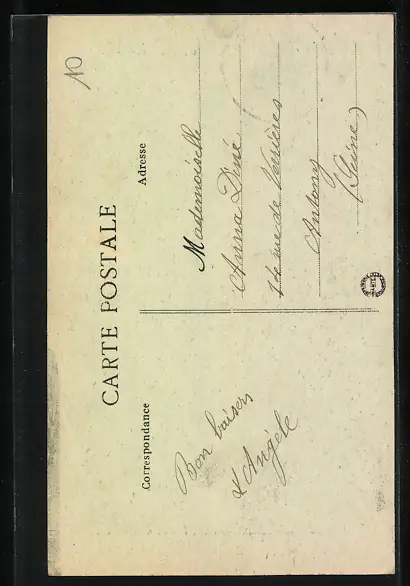 CARTE POSTALE
Correspondance
Adresse
Bon baisers
d'Angèle
Mademoiselle
Anna Diné
14 rue de Verrières
Antony
(Seine)